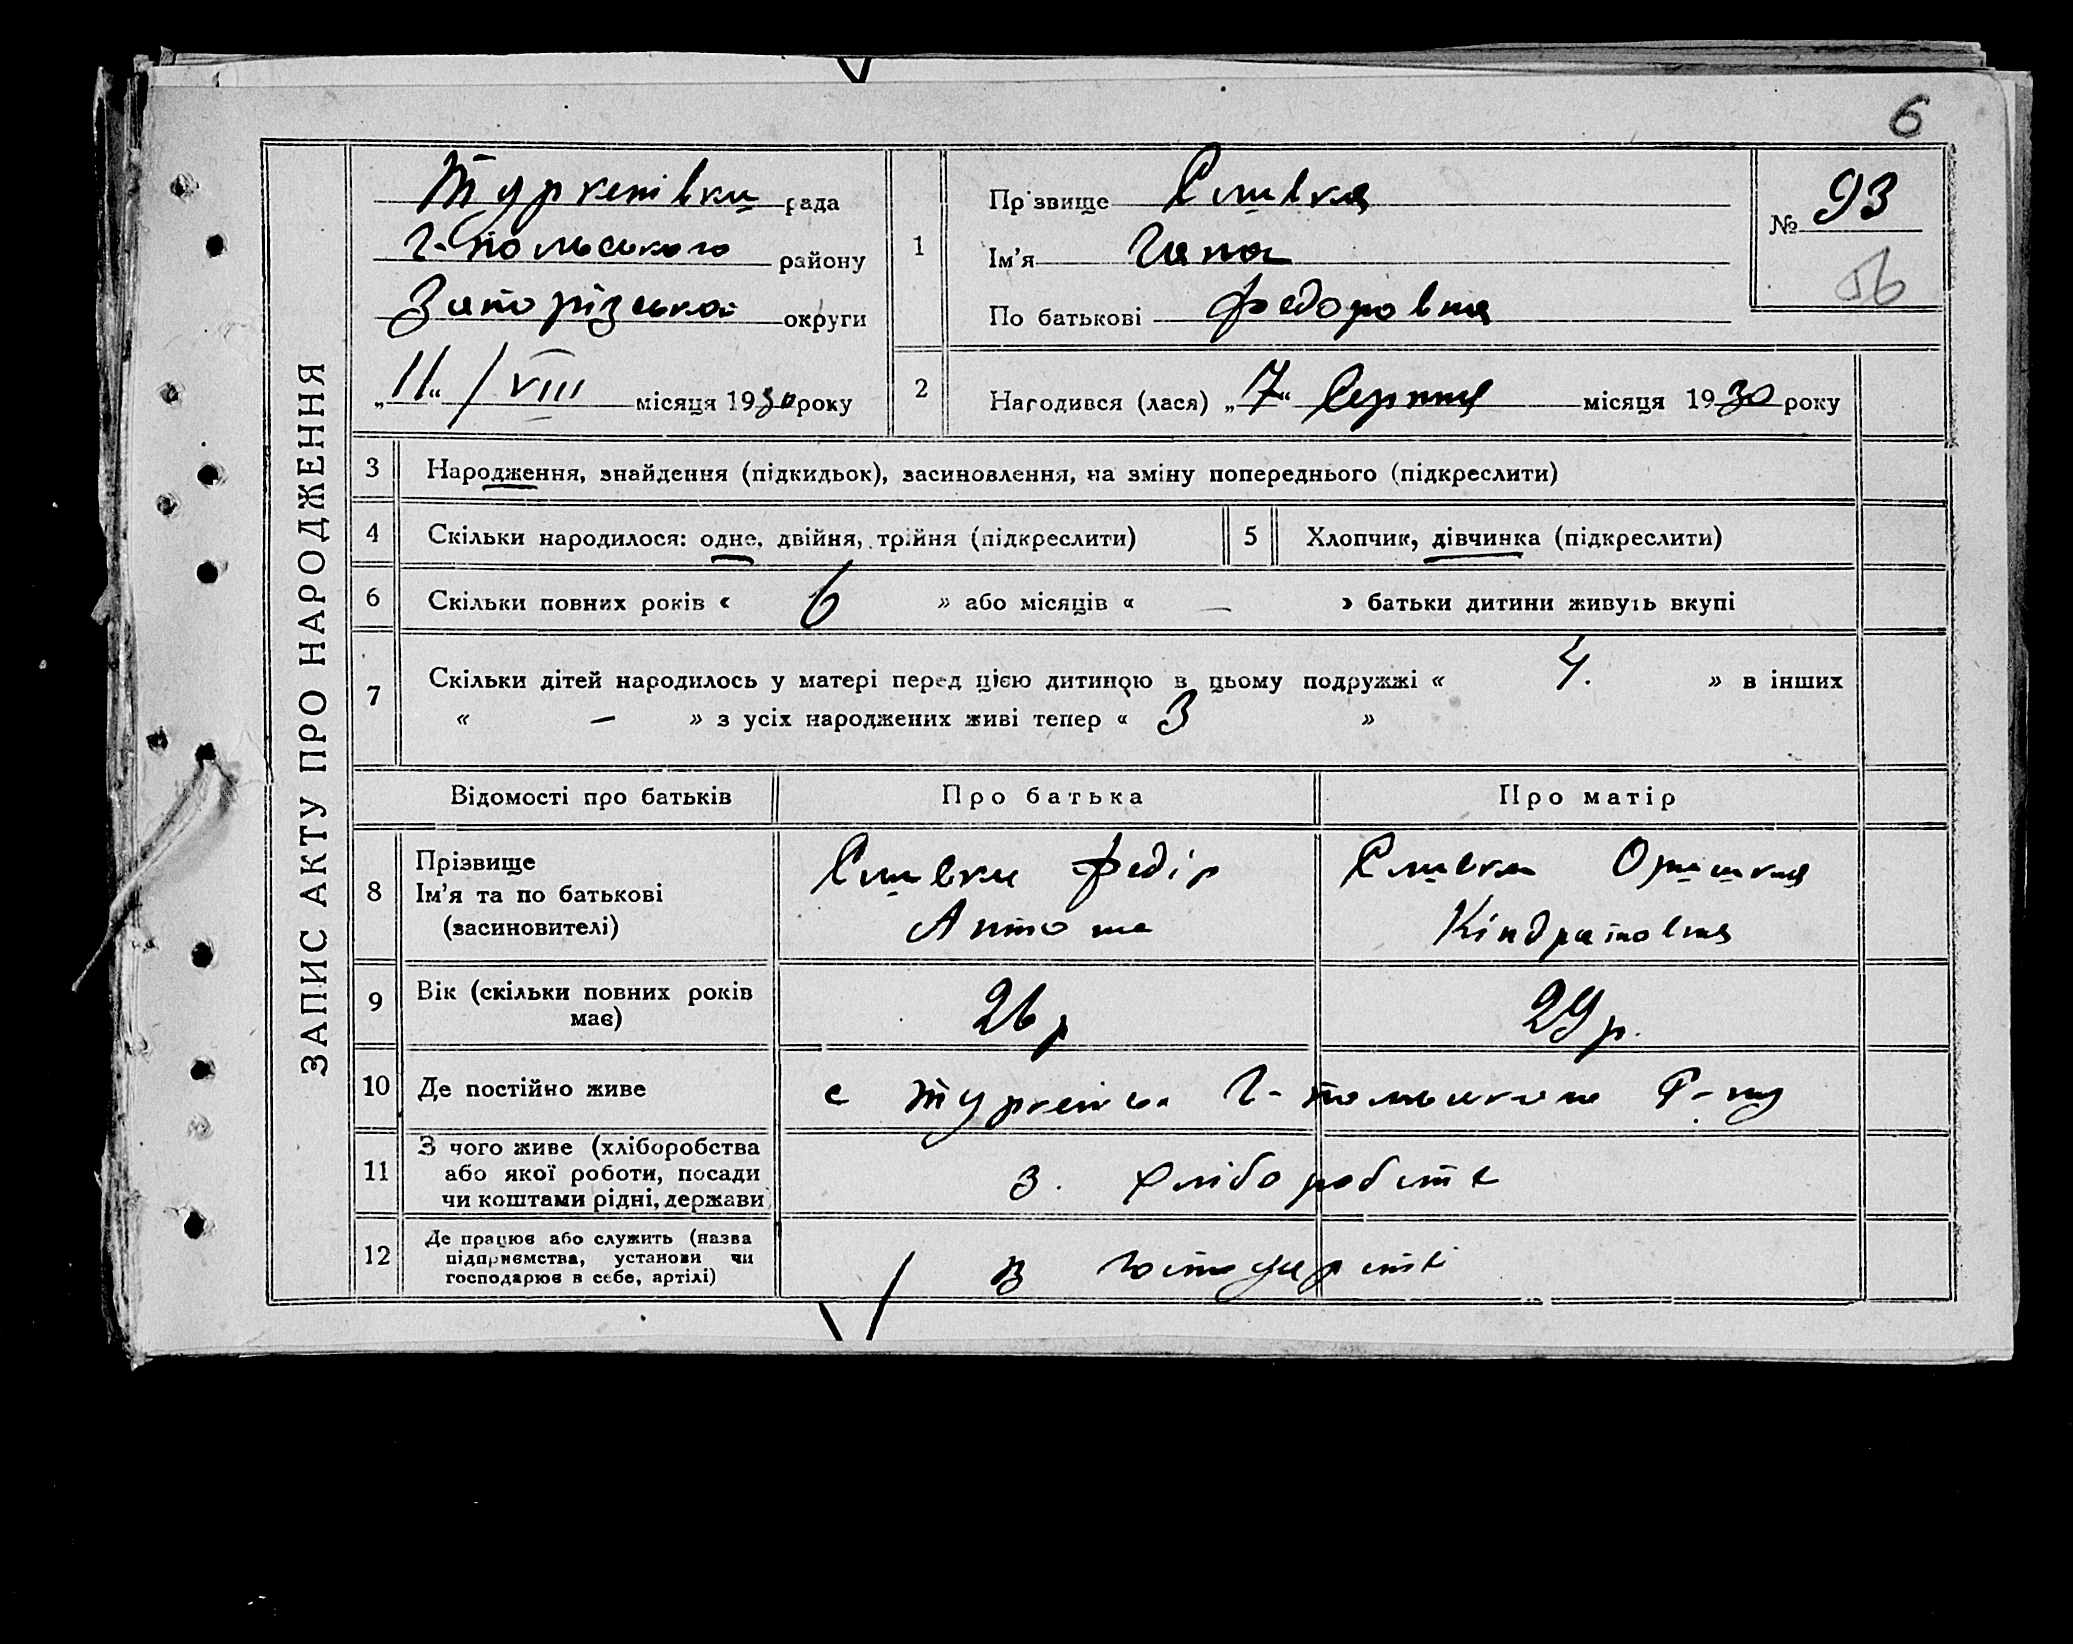 6
ЗАПИС АКТУ ПРО НАРОДЖЕННЯ
Туркенівки рада
г-польського району
Запорізької округи
„11“ / VIII місяця 1930 року
1
Прізвище Сливка
Ім'я Ганна
По батькові Федоровна
№ 93
56
2
Народився (лася) „7“ Серпня місяця 1930 року
3 Народження, знайдення (підкидьок), засиновлення, на зміну попереднього (підкреслити)
4 Скільки народилося: одне, двійня, трійня (підкреслити)
5 Хлопчик, дівчинка (підкреслити)
6 Скільки повних років « 6 » або місяців « — » батьки дитини живуть вкупі
7 Скільки дітей народилось у матері перед цією дитиною в цьому подружжі « 4. » в інших
« — » з усіх народжених живі тепер « 3 »
Відомості про батьків Про батька Про матір
8
Прізвище
Ім'я та по батькові
(засиновителі)
Сливка Федір
Антоно
Сливка Оришка
Кіндратовна
9 Вік (скільки повних років
має)
26 р
29 р.
10 Де постійно живе
с Туркенівка Г-польського Р-ну
11 З чого живе (хліборобства
або якої роботи, посади
чи коштами рідні, держави)
З. хліборобств
12 Де працює або служить (назва
підприємства, установи чи
господарює в себе, артілі)
В господарстві